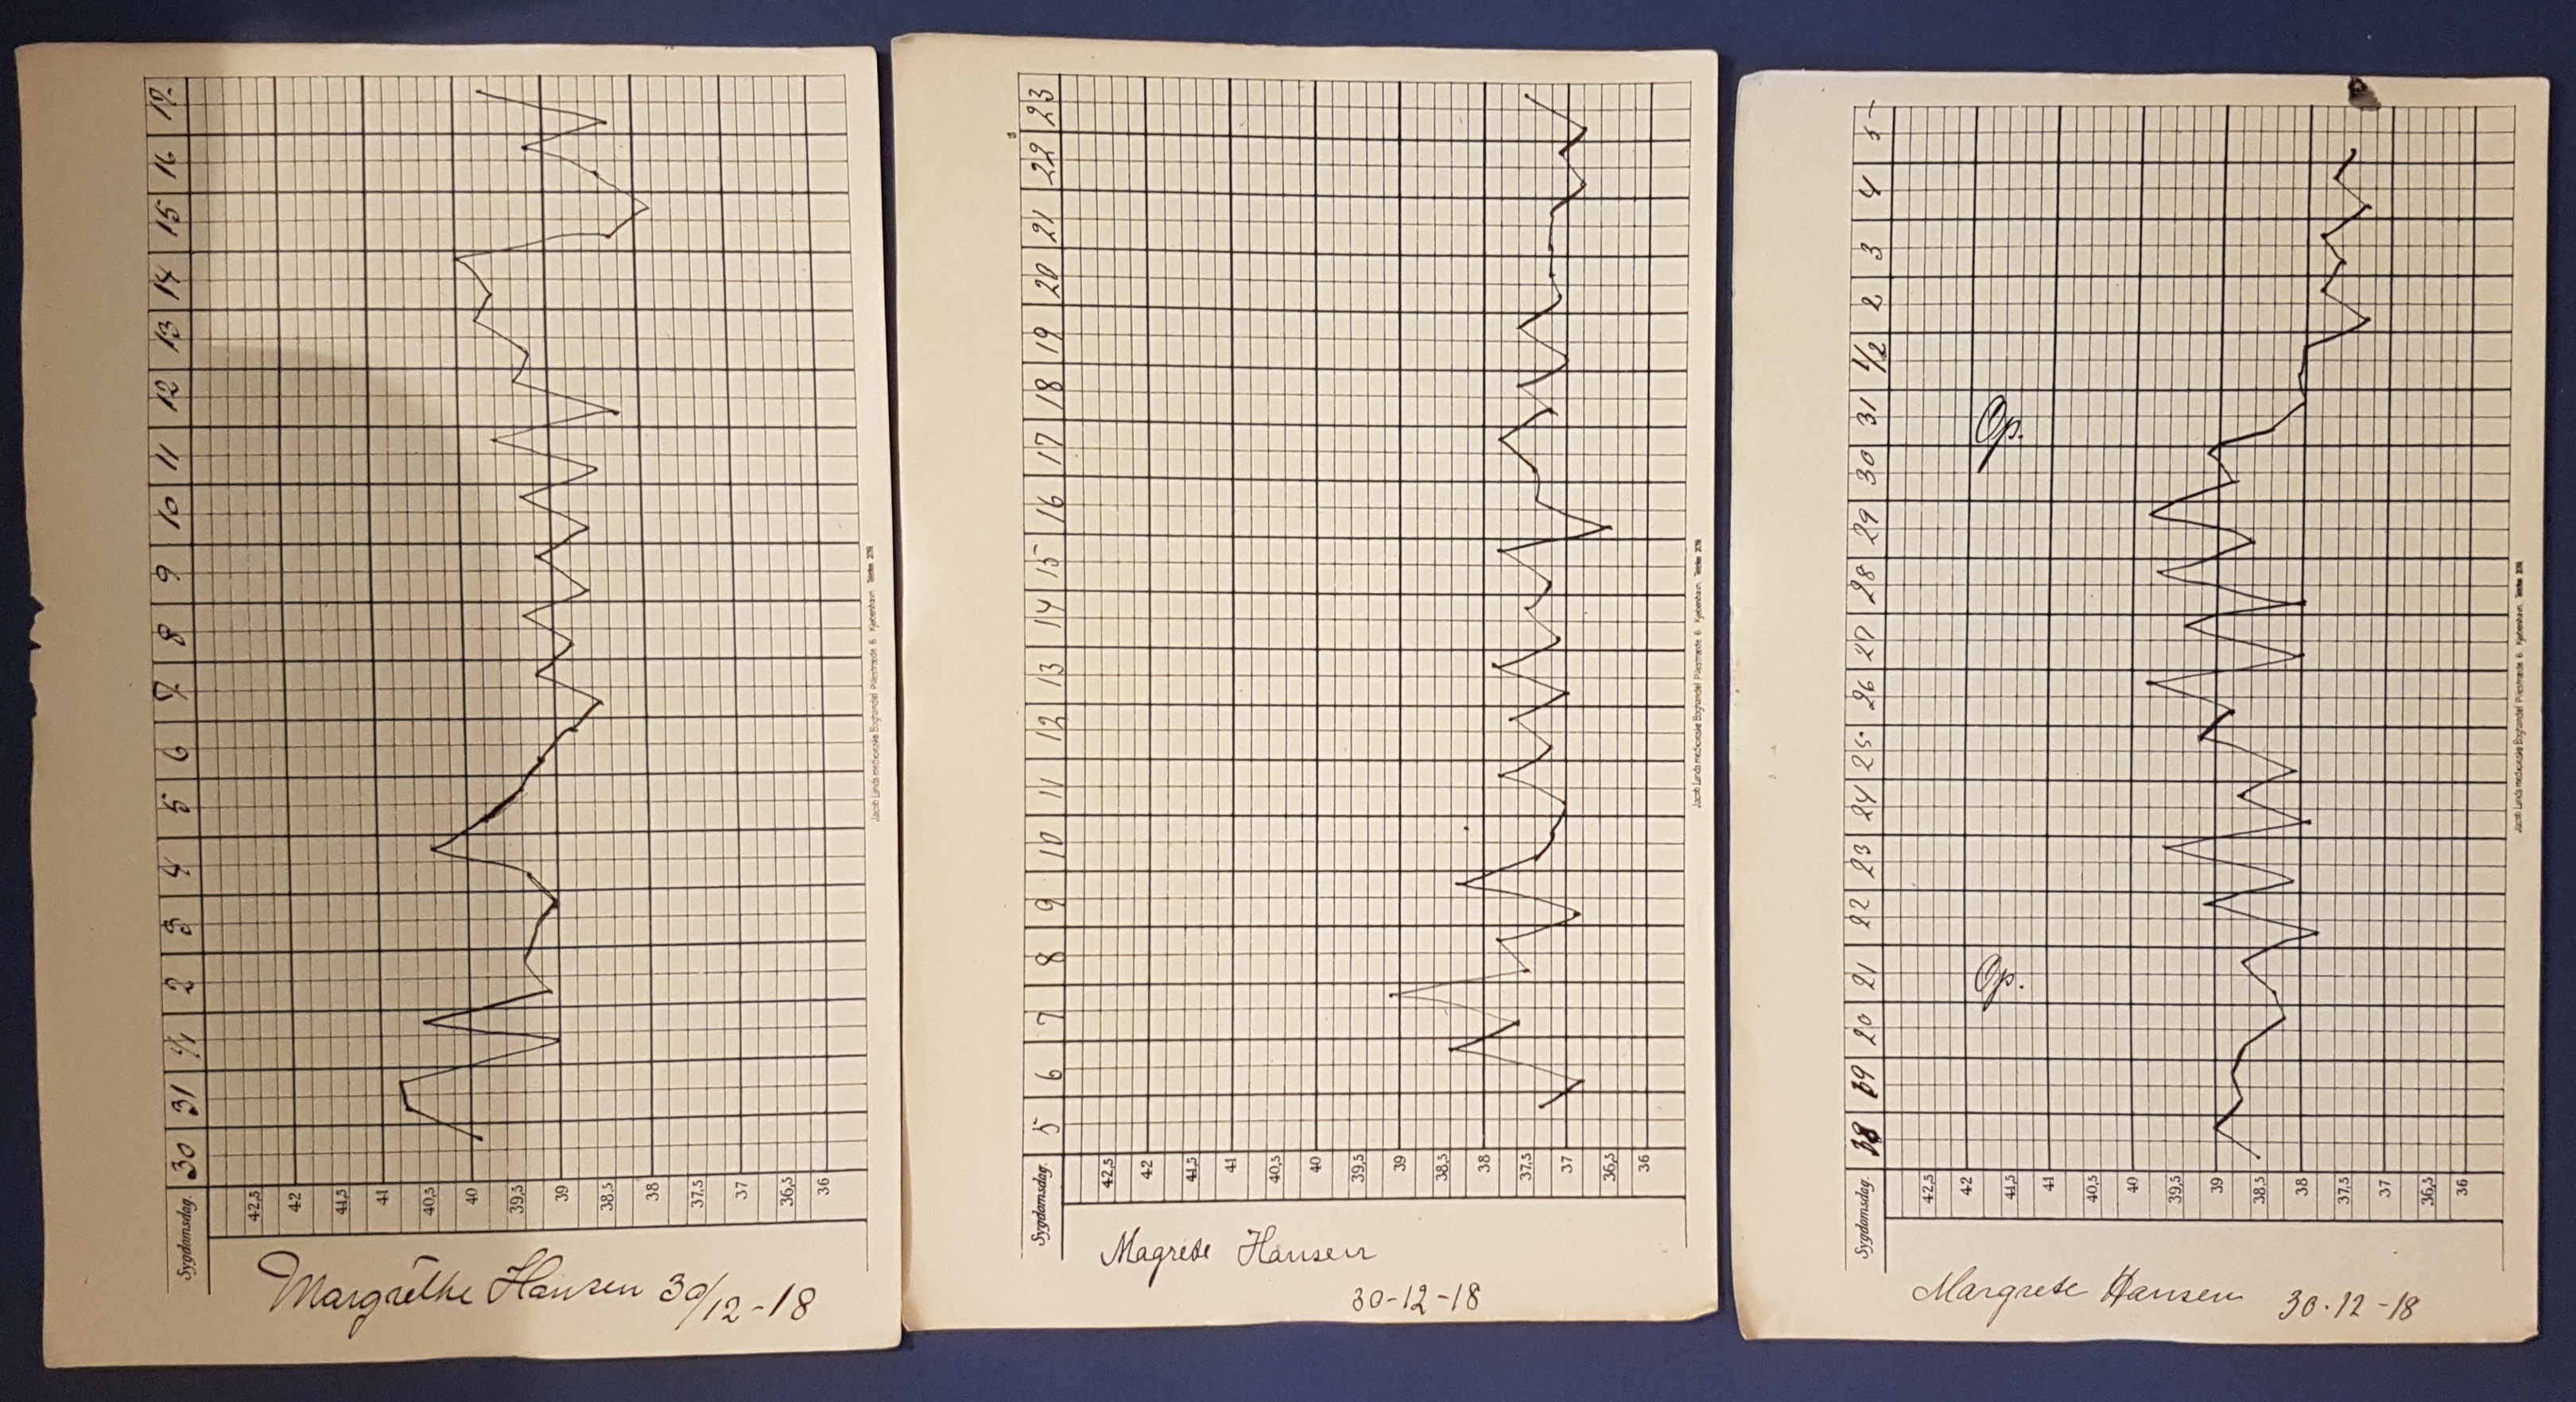 Sygdomsdag. 30 31 1/1 2 3 4 5 6 7 8 9 10 11 12 13 14 15 16 17
42,5 42 41,5 41 40,5 40 39,5 39 38,5 38 37,5 37 36,5 36
Margrethe Hansen 30/12-18
Jacob Lunds medicinske Boghandel Pilestræde 6 Kjøbenhavn. Telefon
Sygdomsdag. 5 6 7 8 9 10 11 12 13 14 15 16 17 18 19 20 21 22 23
42,5 42 41,5 41 40,5 40 39,5 39 38,5 38 37,5 37 36,5 36
Magrete Hansen
30-12-18
Jacob Lunds medicinske Boghandel Pilestræde 6 Kjøbenhavn. Telefon
Sygdomsdag. 18 19 20 21 22 23 24 25 26 27 28 29 30 31 1/2 2 3 4 5
Op.
Op.
42,5 42 41,5 41 40,5 40 39,5 39 38,5 38 37,5 37 36,5 36
Margrete Hansen 30.12-18
Jacob Lunds medicinske Boghandel Pilestræde 6 Kjøbenhavn. Telefon